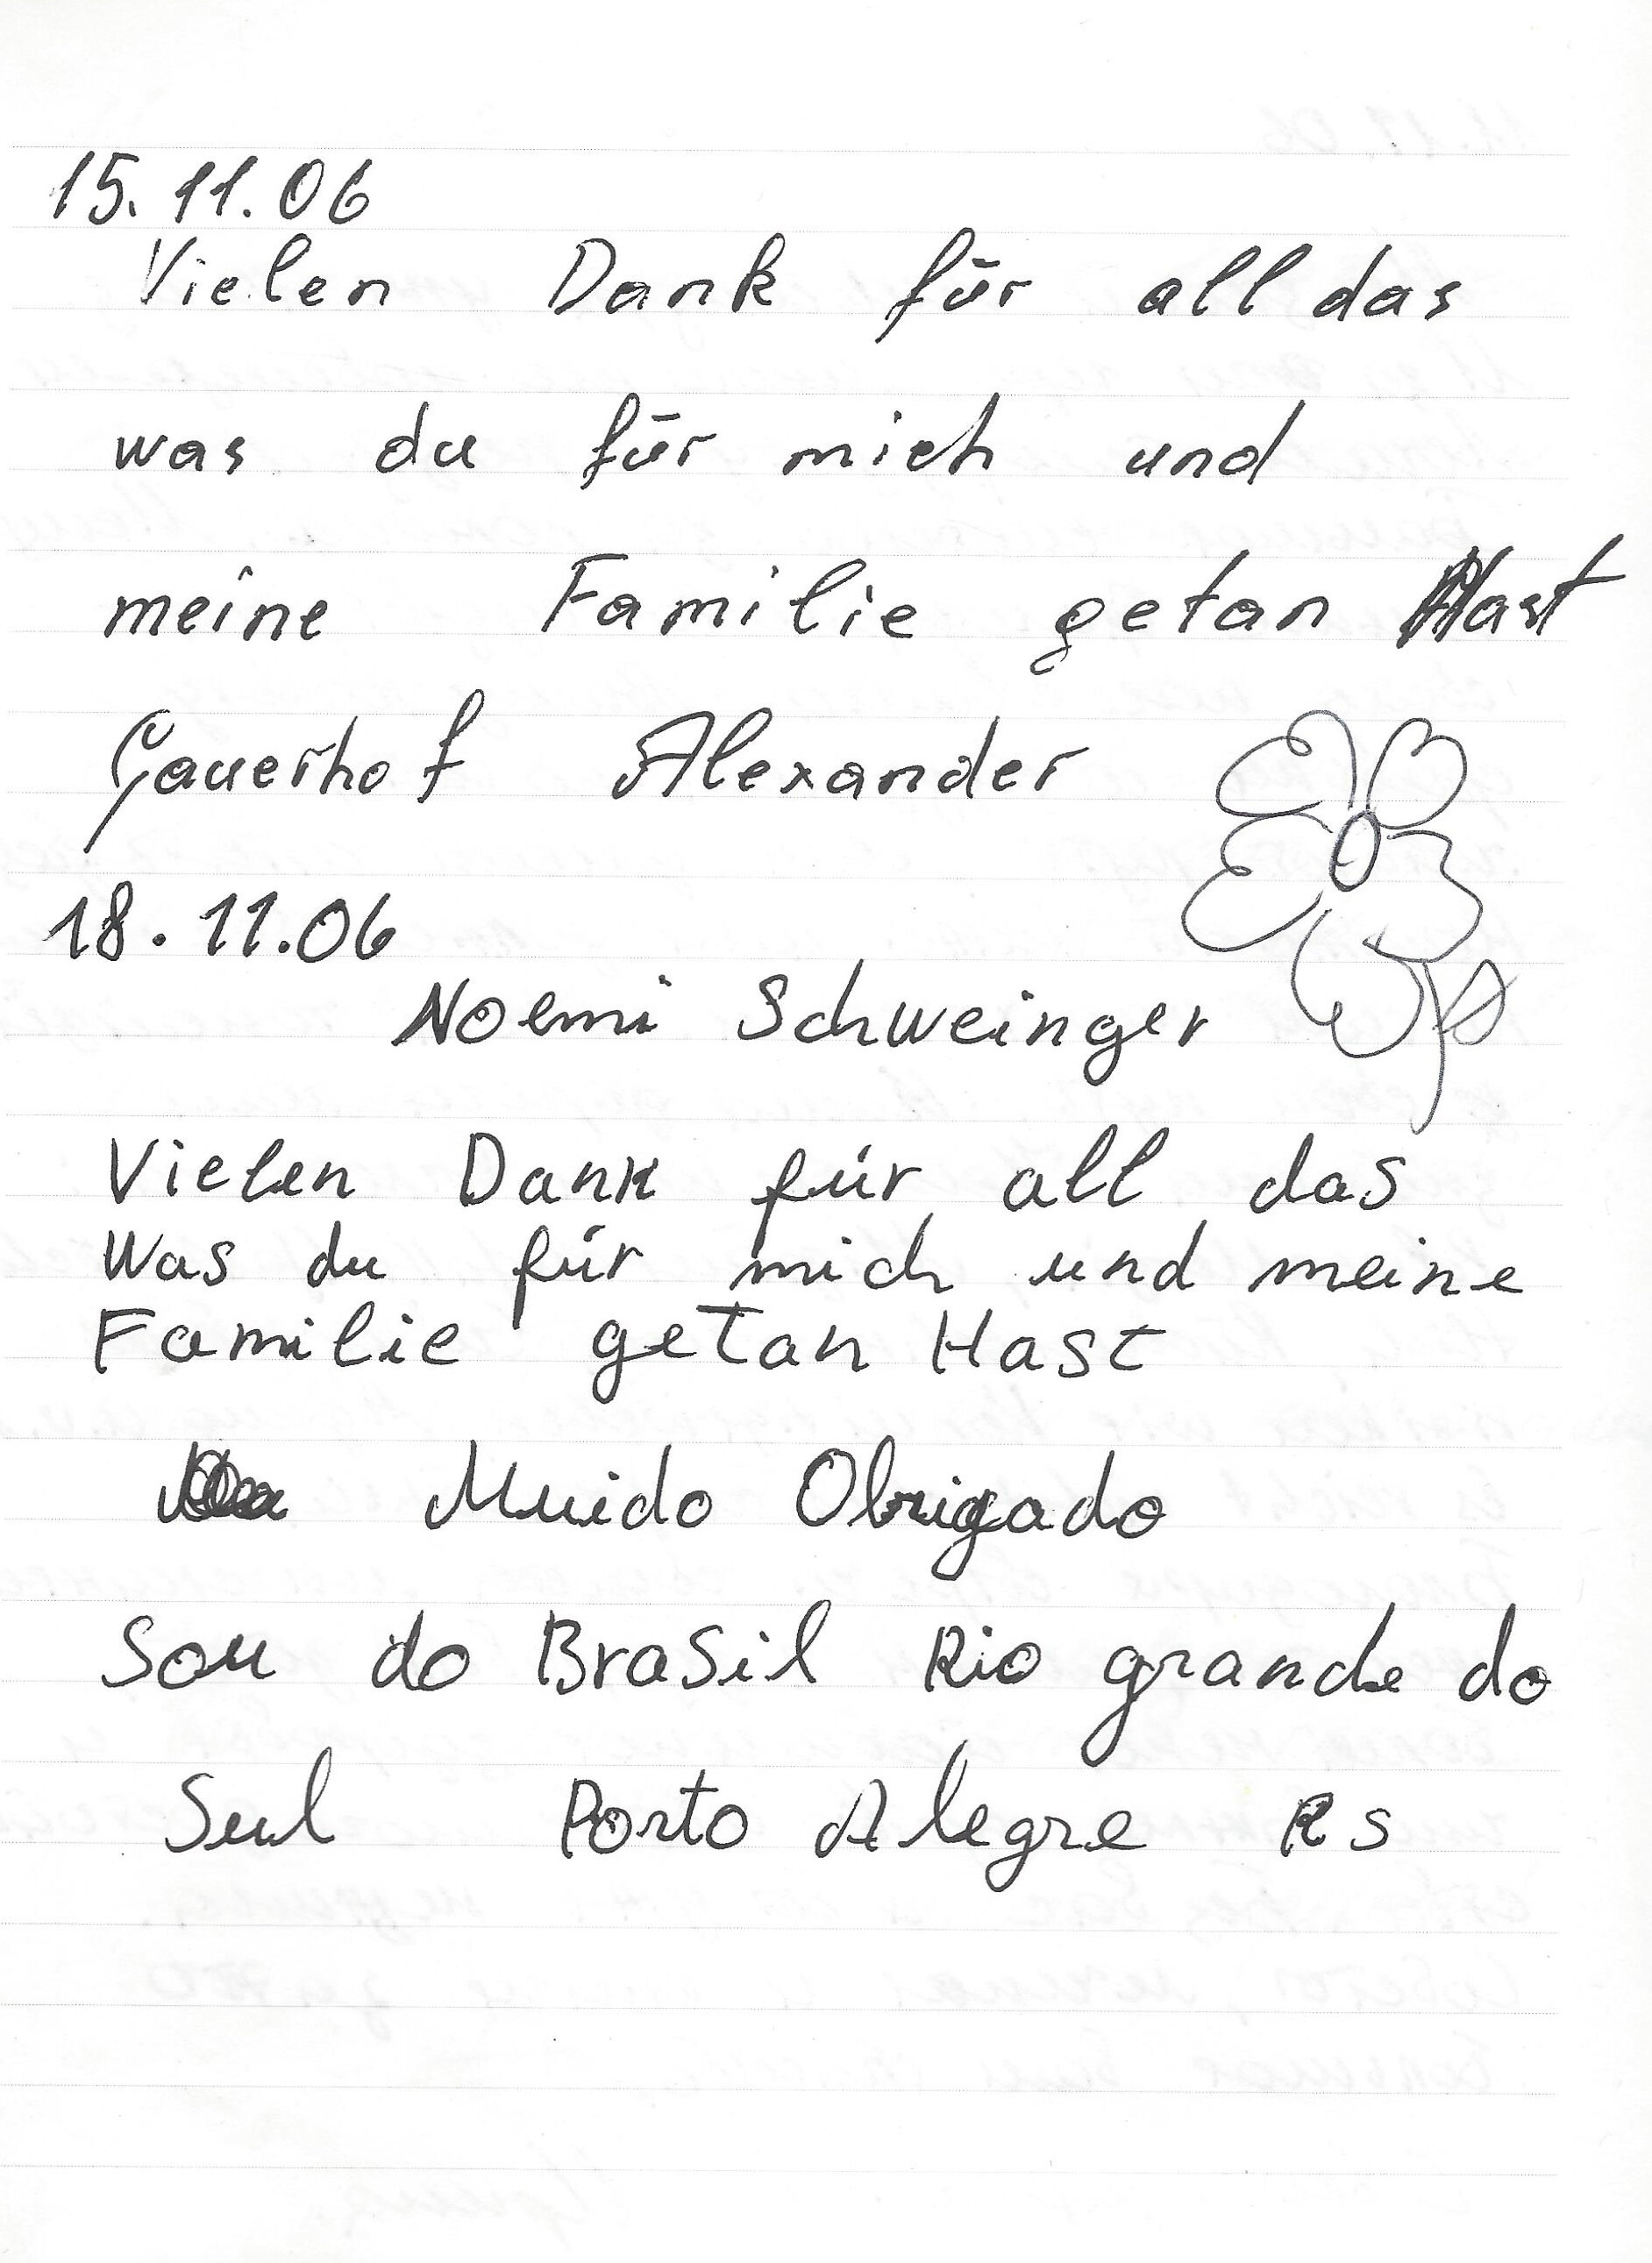 15.11.06
Vielen Dank für all das
was du für mich und
meine Familie getan Hast
Gauerhof Alexander
18.11.06
Noemi Schweinger
Vielen Dank für all das
Was du für mich und meine
Familie getan Hast
Muido Obrigado
Sou do Brasil Rio grande do
Sul Porto Alegre Rs